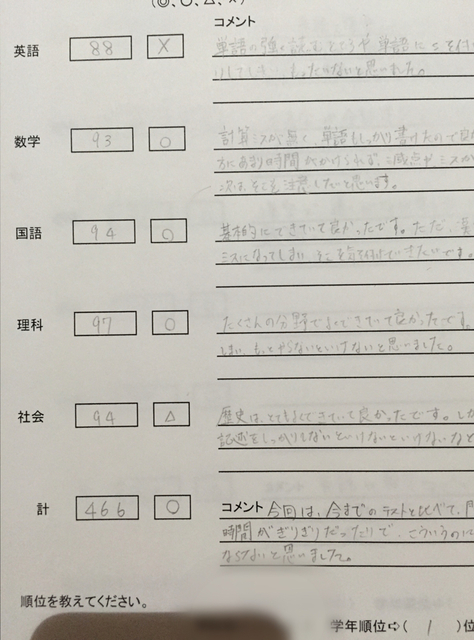 (◎、○、△、×)
コメント
英語 88 × 単語の強く読むところや単語にsを付け
してしまい、もったいないと思いました。
数学 93 ○ 計算ミスが無く、単語もしっかり書けたので良か
方にあまり時間がかけられず、減点やミスが
次は、そこを注意したいと思います。
国語 94 ○ 基本的にできていて良かったです。ただ、
ミスになってしまい、そこを気を付けていきたいです。
理科 97 ○ たくさんの分野でよくできていて良かったです。
しまい、もっとやらないといけないと思いました。
社会 94 △ 歴史は、とてもよくできていて良かったです。しか
記述をしっかりしないといけないといけないなと
計 466 ○ コメント 今回は、今までのテストと比べて、
時間がぎりぎりだったりで、こういうのに
ならないと思いました。
順位を教えてください。
学年順位⇨( 1 )位